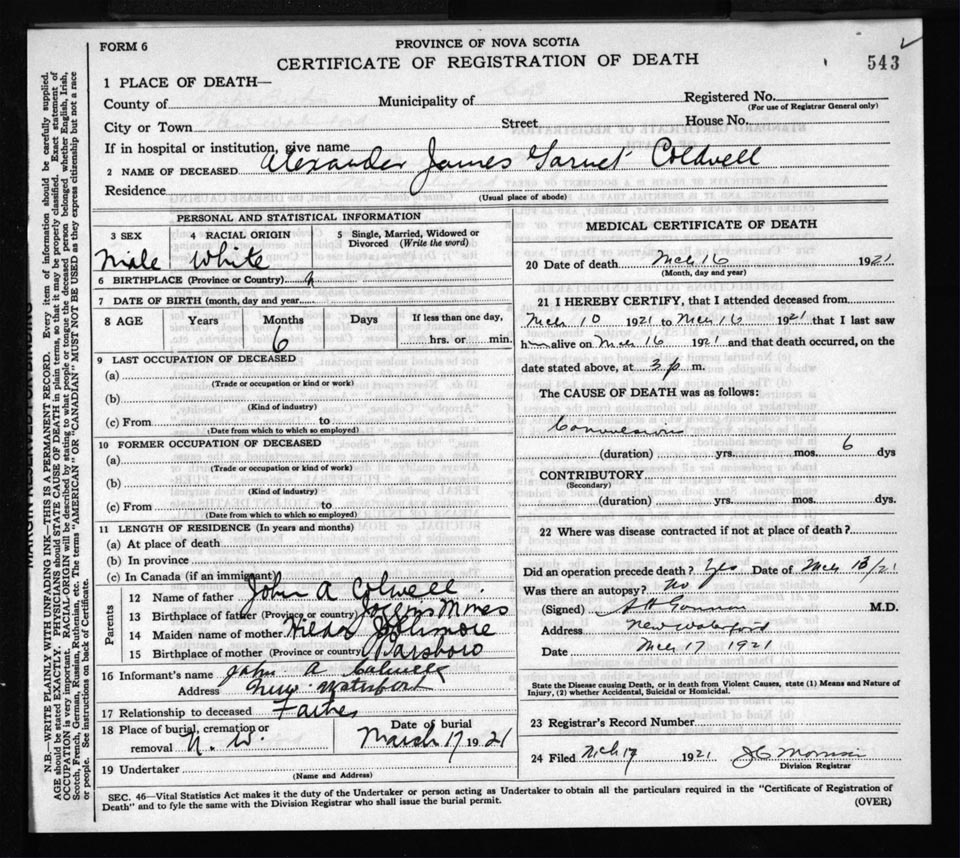 FORM 6
PROVINCE OF NOVA SCOTIA
CERTIFICATE OF REGISTRATION OF DEATH
543
1 PLACE OF DEATH—
County of Municipality of Registered No.
(For use of Registrar General only)
City or Town Street House No.
If in hospital or institution, give name
2 NAME OF DECEASED Alexander James Garnet Coldwell
Residence
(Usual place of abode)
PERSONAL AND STATISTICAL INFORMATION
3 SEX 4 RACIAL ORIGIN 5 Single, Married, Widowed or Divorced (Write the word)
Male White
6 BIRTHPLACE (Province or Country)
7 DATE OF BIRTH (month, day and year)
8 AGE Years Months Days If less than one day,
6 hrs. or min.
9 LAST OCCUPATION OF DECEASED
(a)
(Trade or occupation or kind or work)
(b)
(Kind of industry)
(c) From to
(Date from which to which so employed)
10 FORMER OCCUPATION OF DECEASED
(a)
(Trade or occupation or kind of work)
(b)
(Kind of industry)
(c) From to
(Date from which to which so employed)
11 LENGTH OF RESIDENCE (In years and months)
(a) At place of death
(b) In province
(c) In Canada (if an immigrant)
Parents
12 Name of father John A Colwell
13 Birthplace of father (Province or country) Joggins Mines
14 Maiden name of mother Hilda
15 Birthplace of mother (Province or country) Parsboro
16 Informant's name John A Colwell
Address New Waterford
17 Relationship to deceased Father
18 Place of burial, cremation or removal N. W. Date of burial March 17 1921
19 Undertaker
(Name and Address)
MEDICAL CERTIFICATE OF DEATH
20 Date of death Mch 16 1921
(Month, day and year)
21 I HEREBY CERTIFY, that I attended deceased from
Mch 10 1921 to Mch 16 1921 that I last saw
him alive on Mch 16 1921 and that death occurred, on the
date stated above, at 3 p m.
The CAUSE OF DEATH was as follows:
Convulsions
(duration) yrs. mos. 6 dys
CONTRIBUTORY
(Secondary)
(duration) yrs. mos. dys.
22 Where was disease contracted if not at place of death?
Did an operation precede death? Yes Date of Mch 13/21
Was there an autopsy? No
(Signed) M.D.
Address New Waterford
Date Mch 17 1921
State the Disease causing Death, or in death from Violent Causes, state (1) Means and Nature of Injury, (2) whether Accidental, Suicidal or Homicidal.
23 Registrar's Record Number
24 Filed Mch 17 1921 J C Morrison
Division Registrar
SEC. 46—Vital Statistics Act makes it the duty of the Undertaker or person acting as Undertaker to obtain all the particulars required in the "Certificate of Registration of
Death" and to fyle the same with the Division Registrar who shall issue the burial permit. (OVER)
MARGIN RESERVED FOR BINDING
N.B.—WRITE PLAINLY WITH UNFADING INK—THIS IS A PERMANENT RECORD. Every item of information should be carefully supplied.
AGE should be stated EXACTLY. PHYSICIANS should STATE CAUSE OF DEATH in plain terms, so that it may be properly classified. Exact statement of
OCCUPATION is very important. RACIAL ORIGIN will be described by stating to what people or tongue the deceased person belonged whether English, Irish,
Scotch, French, German, Russian, Ruthenian, etc. The terms "AMERICAN" or "CANADIAN" MUST NOT BE USED as they express citizenship but not a race
or people. See instructions on back of Certificate.